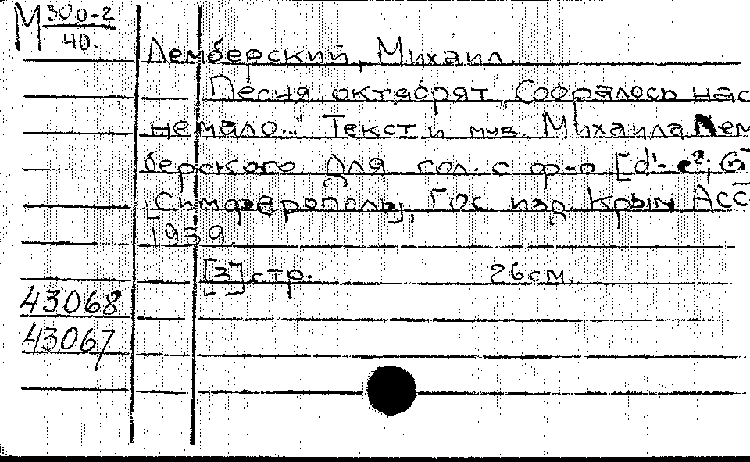 М 300-2
40.
Лемберский, Михаил
Песня октябрят. Собралось нас
немало... Текст и муз. Михаила Лем
берского Для гол. с ф-п [d'-e²; G
Симферополь, Гос. изд. Крым АСС
1939
[3] стр. 26 см.
43068
43067